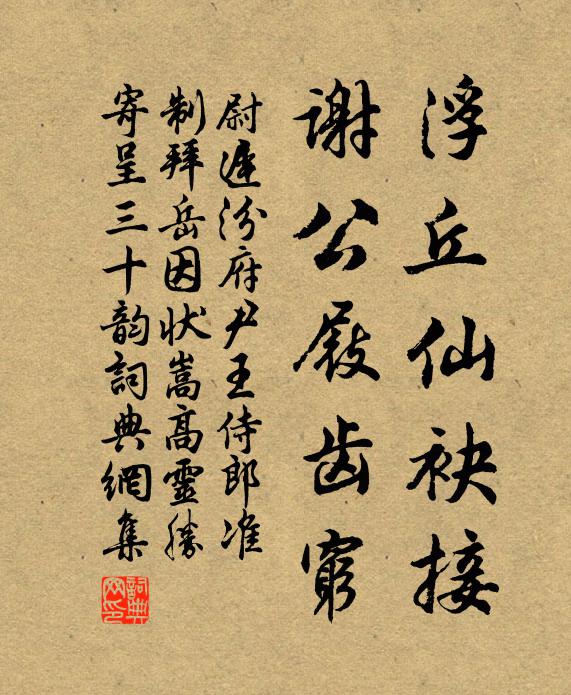 浮丘仙袂接
謝公屐齒窮
尉遲汾府尹王侍郎准
制拜岳因狀嵩高靈勝
寄呈三十韵詞典網集
詞典网印